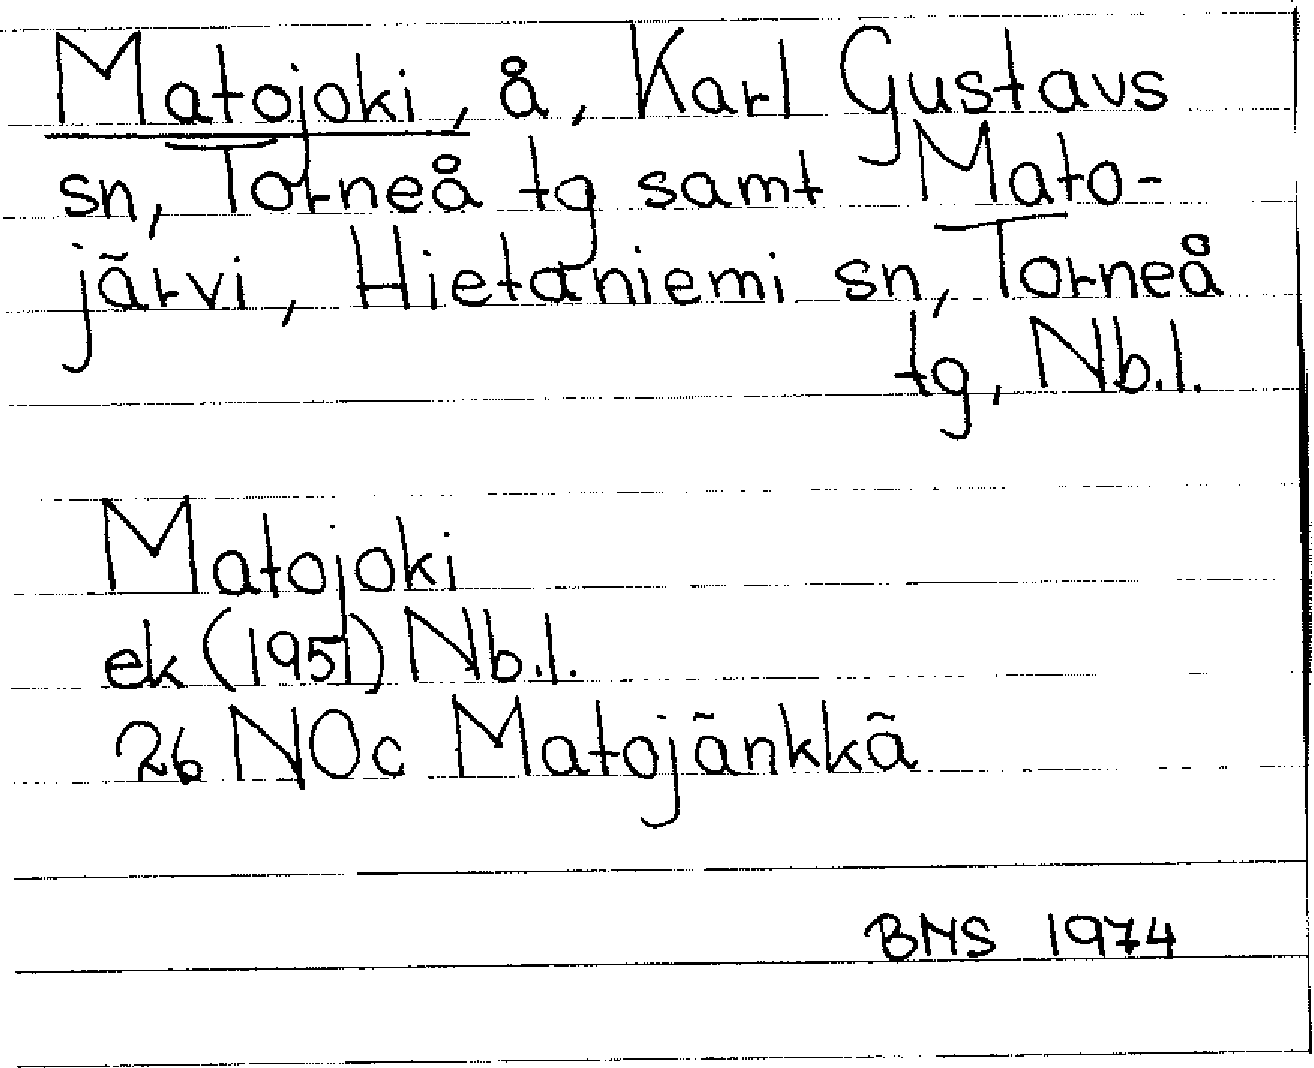 Matojoki, å, Karl Gustavs
sn, Torneå tg samt Mato-
järvi, Hietaniemi sn, Torneå
tg, Nb.l.
Matojoki
ek (1951) Nb.l.
26 NOc Matojänkkä
BNS 1974